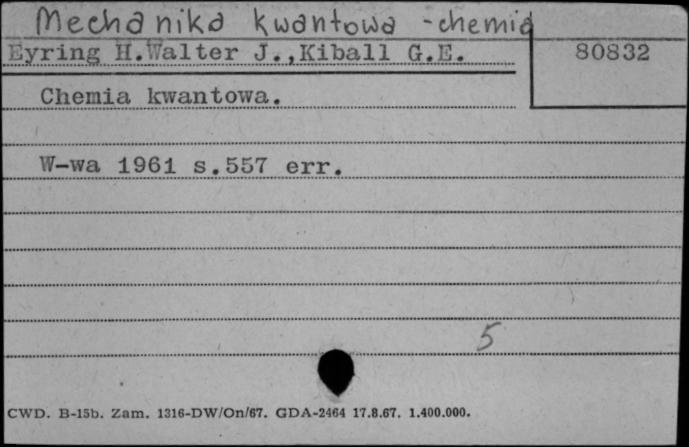 Mechanika kwantowa - chemia
Eyring H.Walter J.,Kiball G.E.
80832
Chemia kwantowa.
W-wa 1961 s.557 err.
5
CWD. B-15b. Zam. 1316-DW/On/67. GDA-2464 17.8.67. 1.400.000.